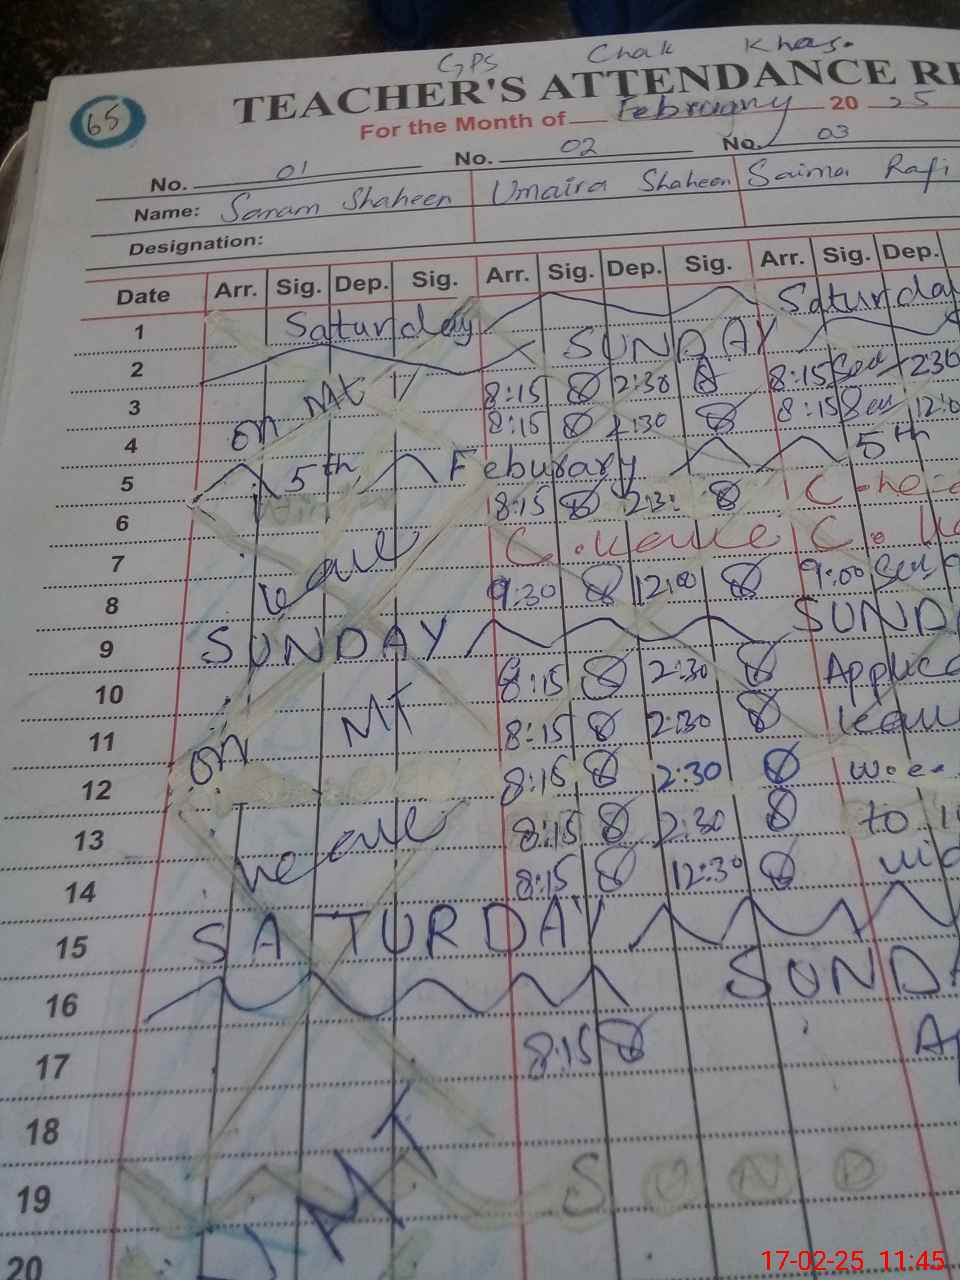 GPS Chak Khas.
65
TEACHER'S ATTENDANCE RE
For the Month of February 20 25
No. 01 No. 02 No. 03
Name: Sanam Shaheen Umaira Shaheen Saima Rafi
Designation:
Date Arr. Sig. Dep. Sig. Arr. Sig. Dep. Sig. Arr. Sig. Dep.
1 Saturday Saturday
2 SUNDAY
3 on Mt 8:15 2:30 8:15 230
4 8:15 2:30 8:15 12:0
5 5th Feburary 5th
6 8:15 2:3
7 Leave C. Leave C. Le
8 9:30 12:00 9:00
9 SUNDAY SUNDA
10 8:15 2:30 Applica
11 on MT 8:15 2:30 Leav
12 8:15 2:30
13 Leave 8:15 2:30 to
14 8:15 12:30
15 SATURDAY
16 SUNDA
17 8:15 A
18
19 MT SUND
20
17-02-25 11:45